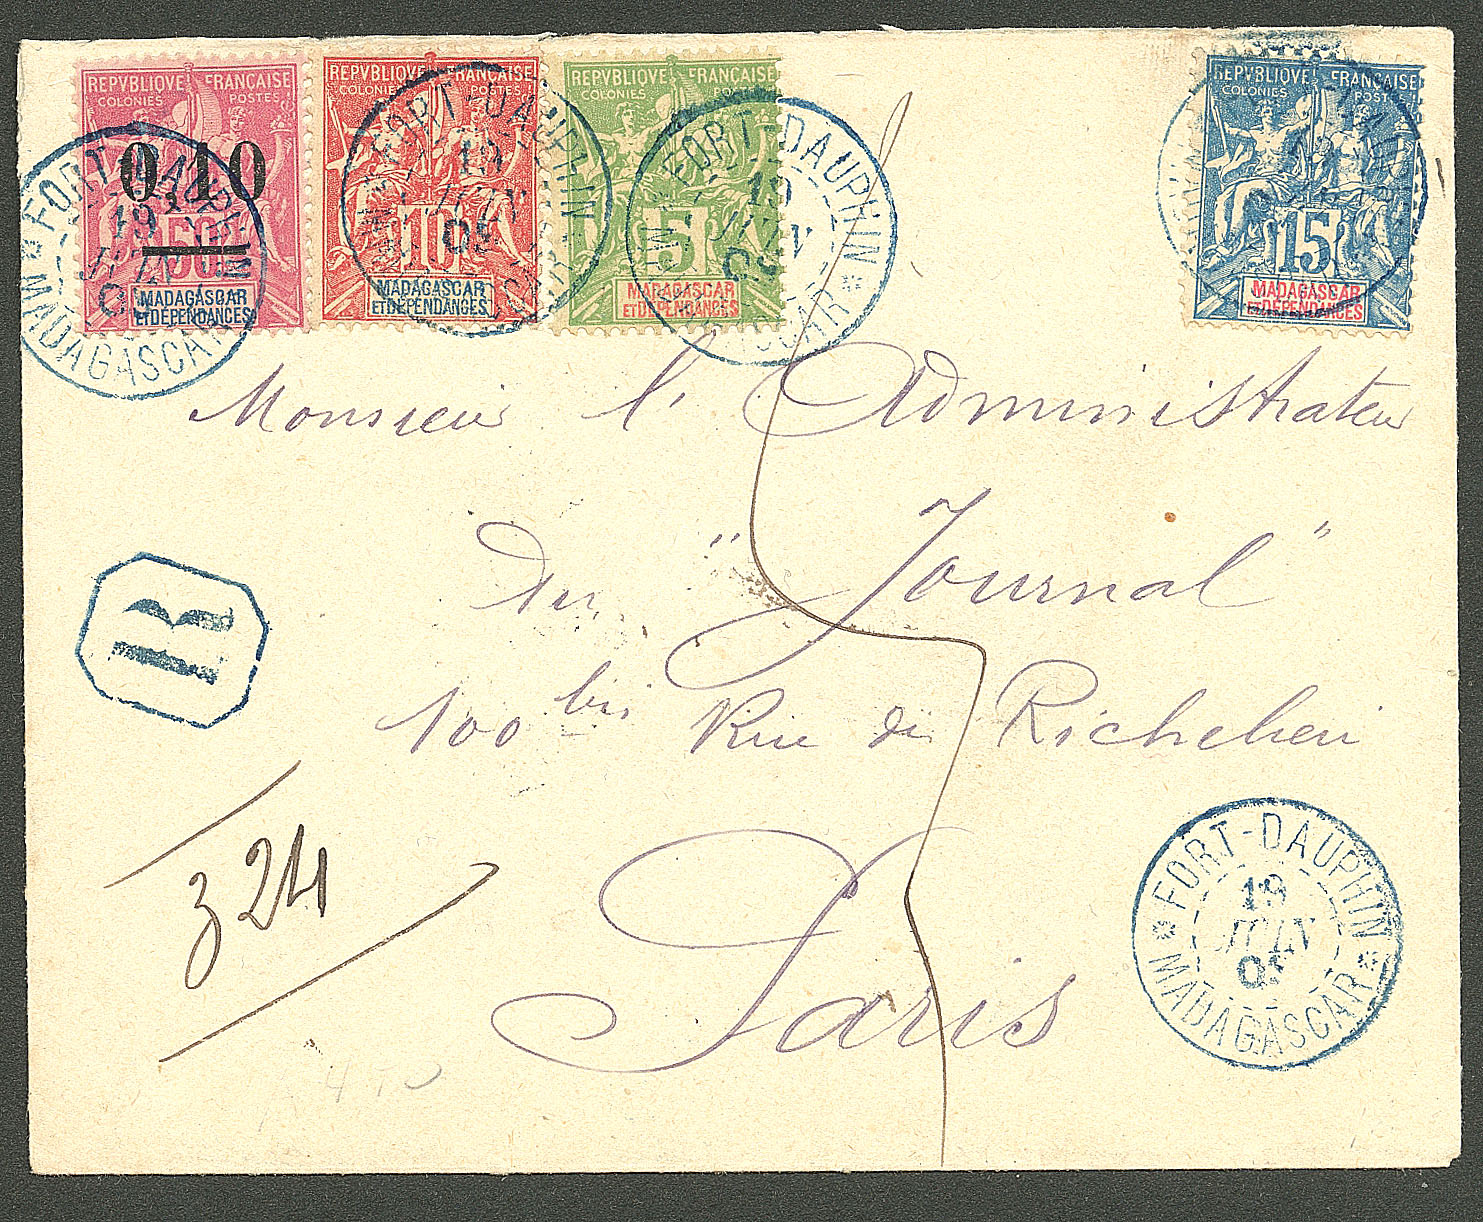 REPVBLIQVE FRANÇAISE
COLONIES POSTES
0,10
50
MADAGASCAR
ET DÉPENDANCES
REPVBLIQVE FRANÇAISE
COLONIES POSTES
10
MADAGASCAR
ET DÉPENDANCES
REPVBLIQVE FRANÇAISE
COLONIES POSTES
5
MADAGASCAR
ET DÉPENDANCES
REPVBLIQVE FRANÇAISE
COLONIES POST
15
MADAGASCAR
ET DÉPENDANCES
FORT-DAUPHIN
19
JUIN
MADAGASCAR
FORT-DAUPHIN
19
JUIN
FORT-DAUPHIN
19
JUIN
Monsieur l'Administrateur
du "Journal"
100 bis Rue de Richelieu
Paris
R
324
FORT-DAUPHIN
19
JUIN
MADAGASCAR